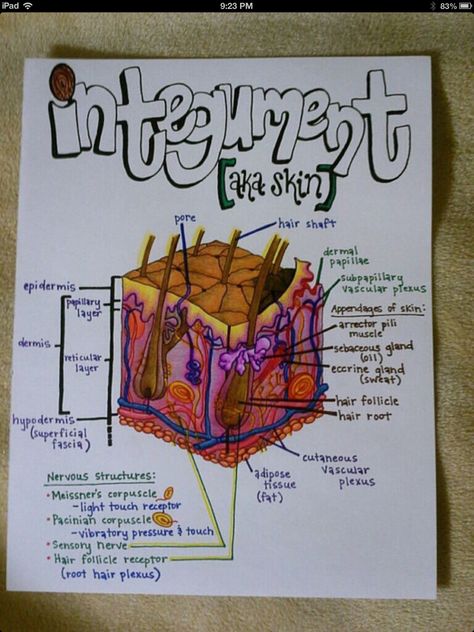 iPad
9:23 PM
83%
integument
[aka skin]
pore
hair shaft
dermal
papillae
subpapillary
vascular plexus
epidermis
papillary
layer
Appendages of skin:
arrector pili
muscle
dermis
sebaceous gland
(oil)
reticular
layer
eccrine gland
(sweat)
hair follicle
hair root
hypodermis
(superficial
fascia)
cutaneous
vascular
plexus
adipose
tissue
(fat)
Nervous Structures:
• Meissner's corpuscle
– light touch receptor
• Pacinian corpuscle
– vibratory pressure & touch
• Sensory nerve
• Hair follicle receptor
(root hair plexus)